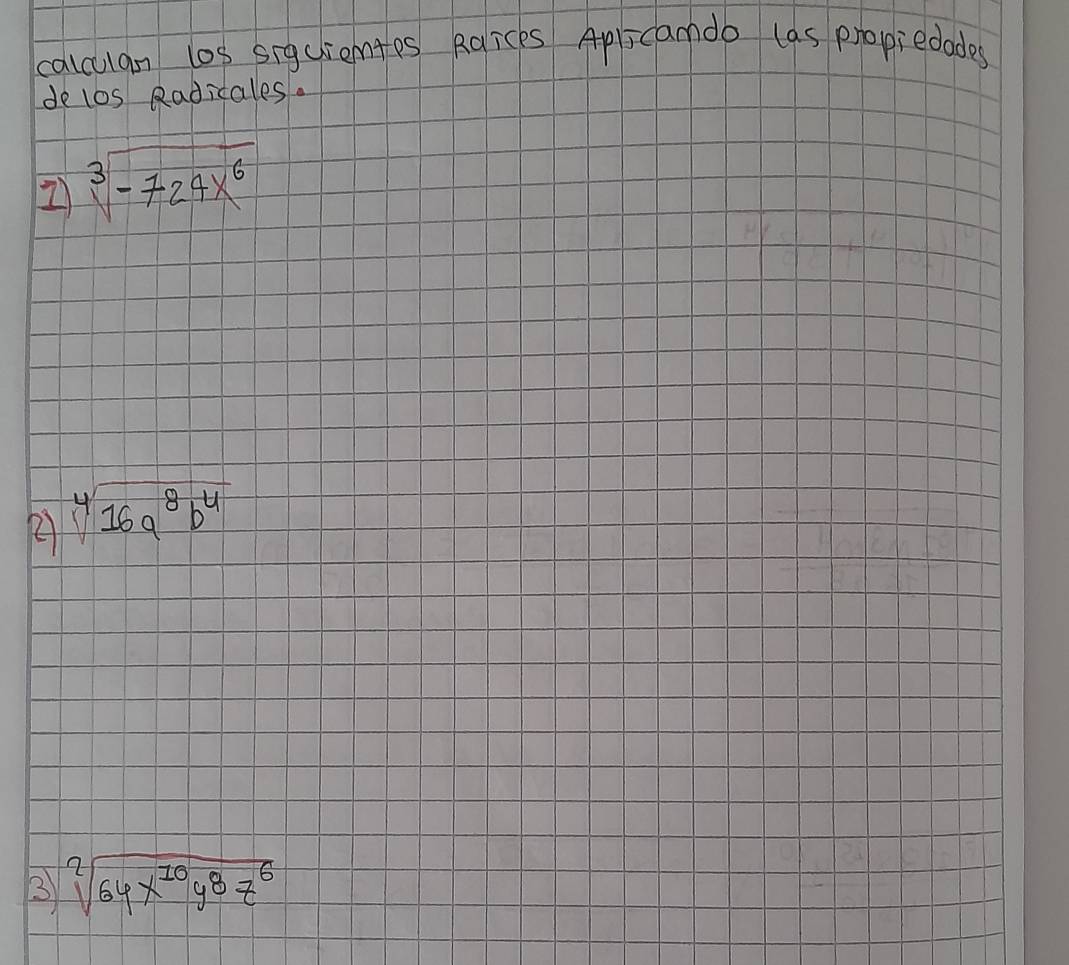 calculan los siguientes Raices Aplicando las propiedades
de los Radicales.
1) ∛-729x⁶
2) ∜16a⁸b⁴
3) ²√64x¹⁰y⁸z⁶